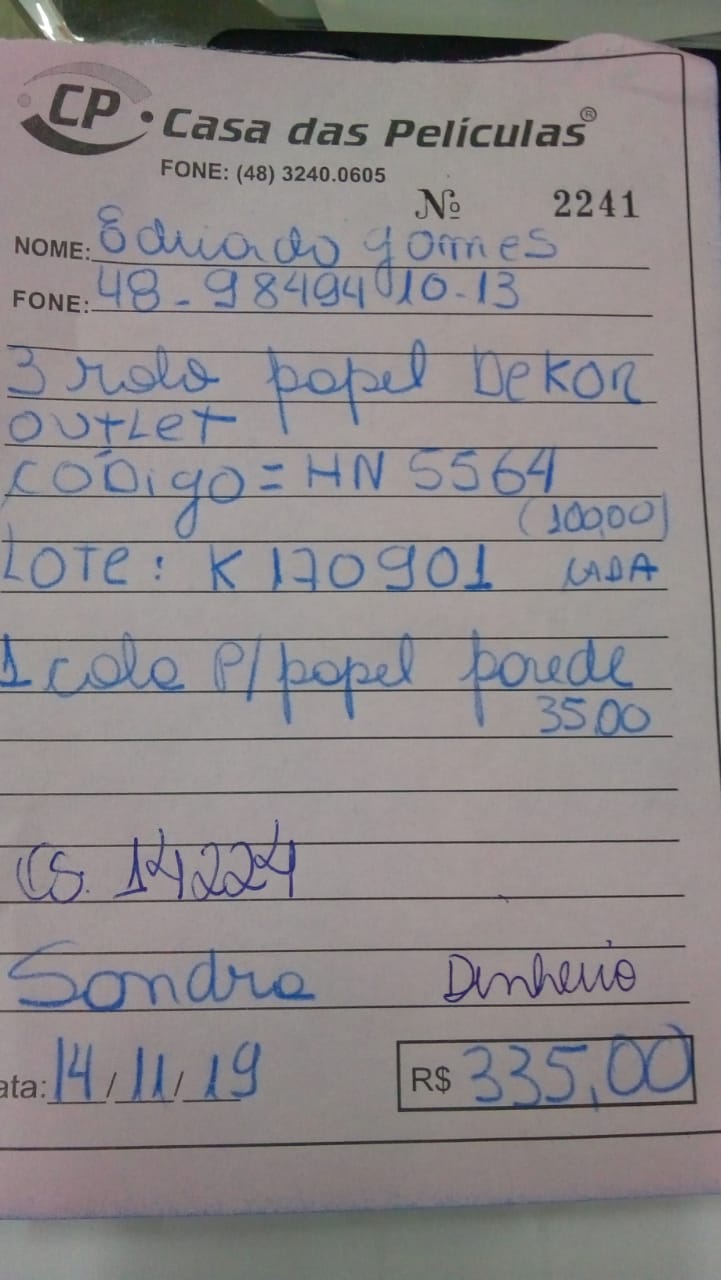 CP • Casa das Películas®
FONE: (48) 3240.0605
Nº 2241
NOME: Eduardo gomes
FONE: 48-98494 10-13
3 rolo papel DeKOR
OUTLET
CÓDigo = HN 5564
(100,00)
LOTe: K170901 CADA
1 cola P/ papel parede
35,00
CS. 14224
Sandra Dinheiro
ata: 14/11/19 R$ 335,00